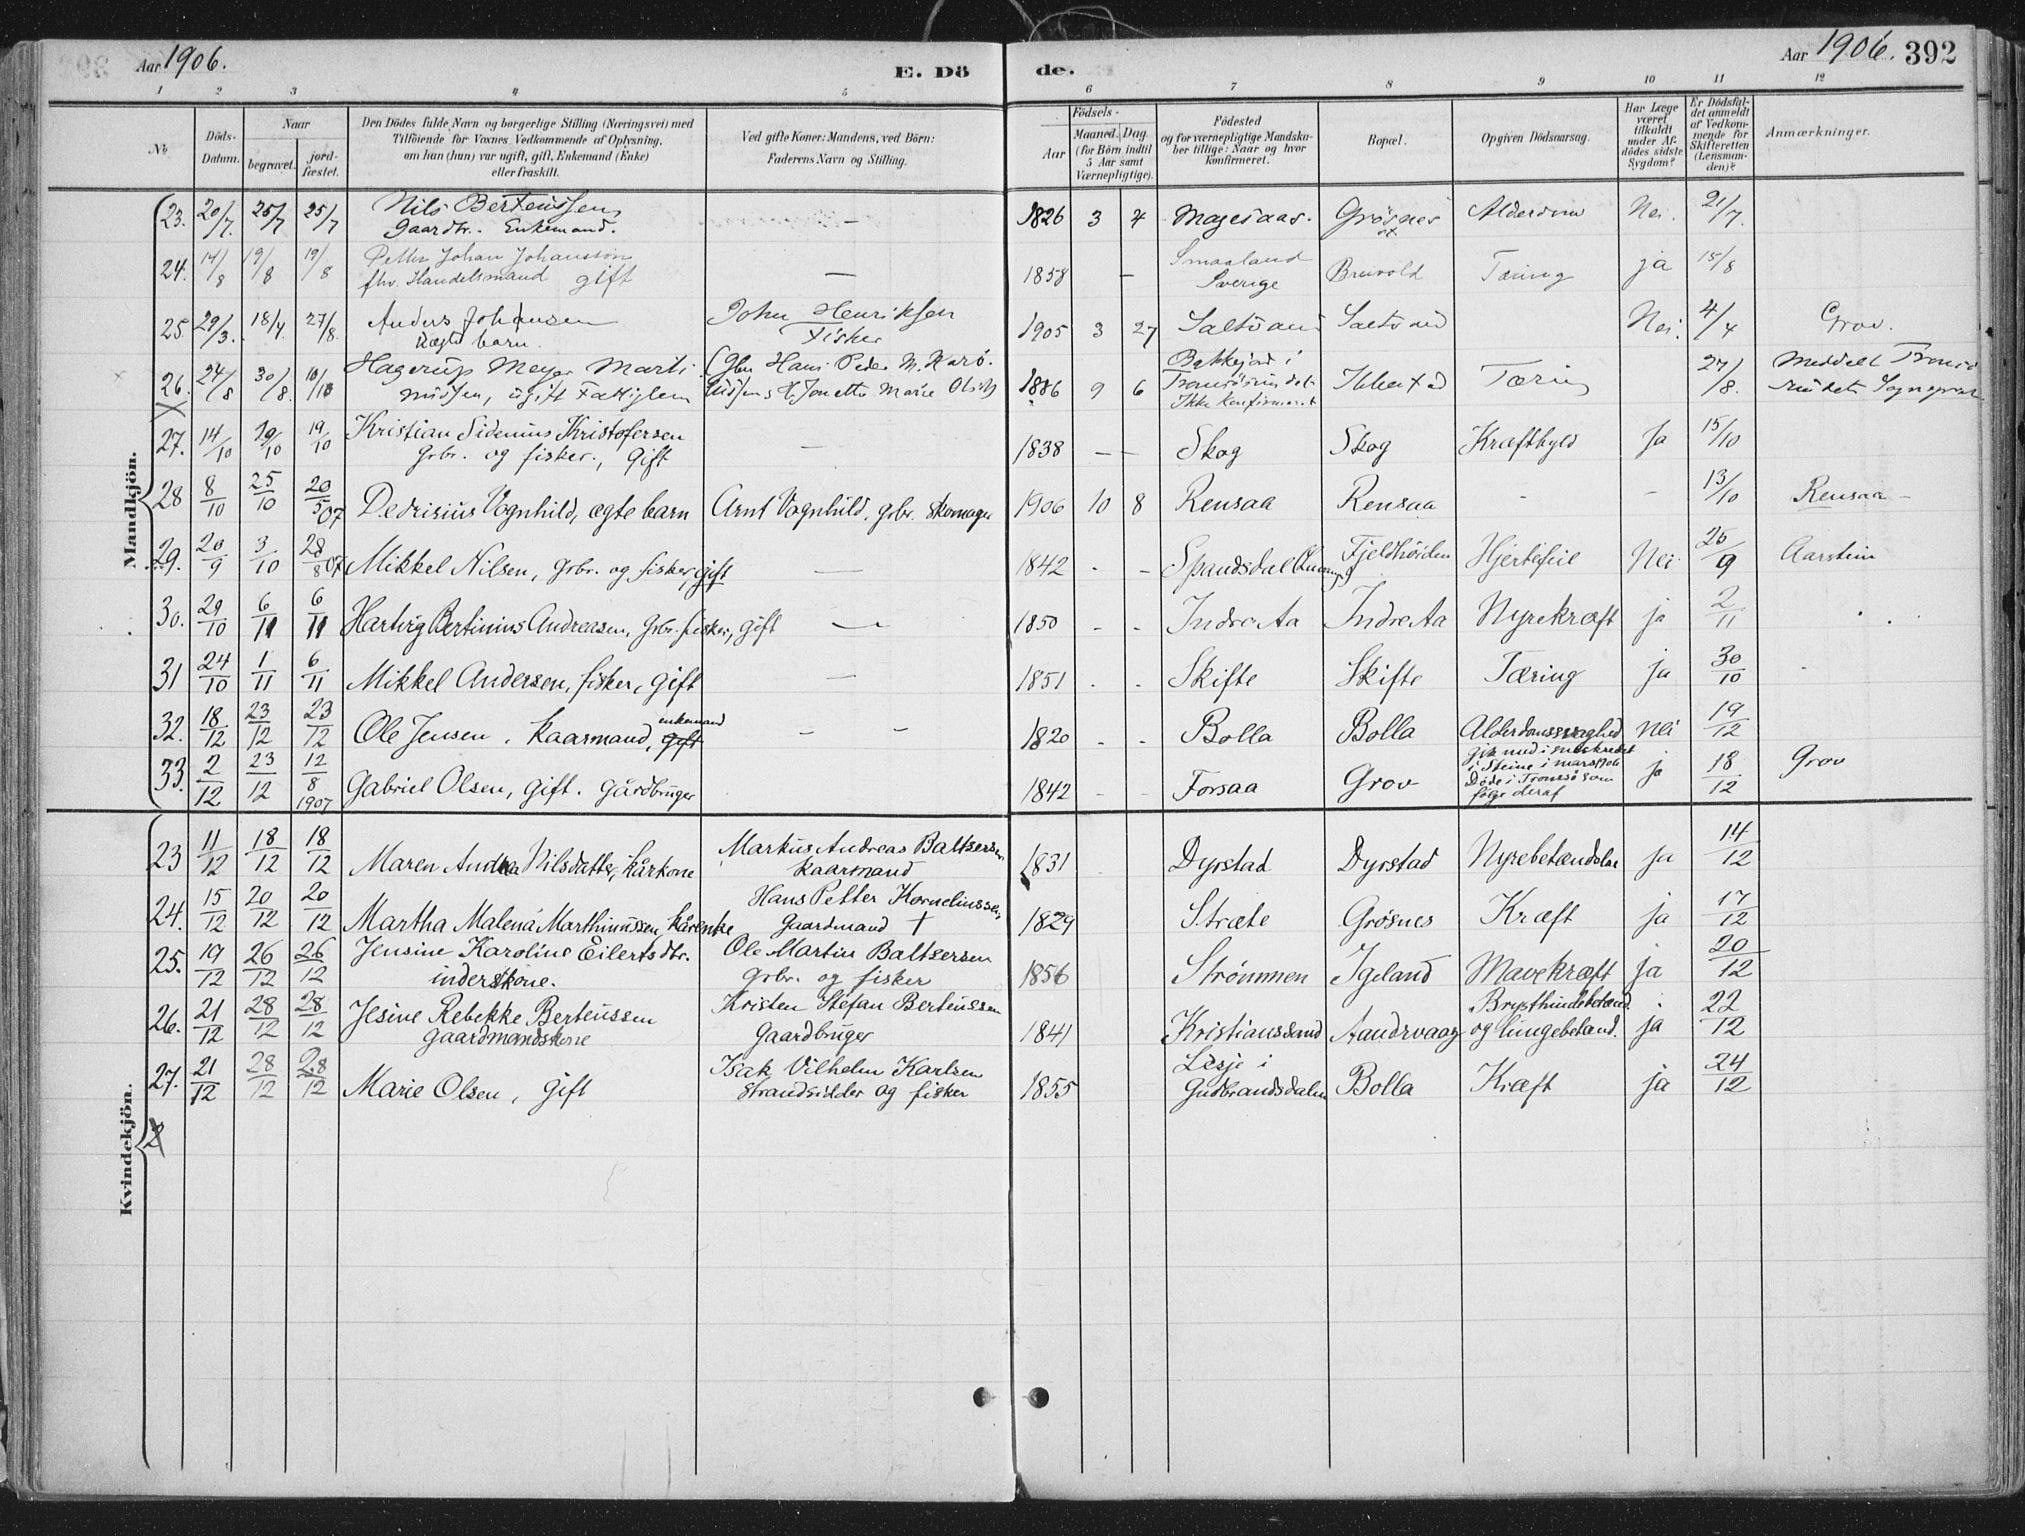 Aar 1906.
E. Dö
de.
Aar 1906. 392
1 2 3 4 5 6 7 8 9 10 11 12
No
Döds-Datum.
Naar
begravet.
jord-fæstet.
Den Dödes fulde Navn og borgerlige Stilling (Næringsvei) med
Tilföiende for Voxnes Vedkommende af Oplysning,
om han (hun) var ugift, gift, Enkemand (Enke)
eller fraskilt.
Ved gifte Koner: Mandens, ved Börn:
Faderens Navn og Stilling.
Födsels-
Aar
Maaned. Dag
(for Börn indtil
5 Aar samt
Værnepligtige).
Födested
og for værnepligtige Mandska-
ber tillige: Naar og hvor
konfirmeret.
Bopæl.
Opgiven Dödsaarsag.
Har Læge
været
tilkaldt
under Af-
dödes sidste
Sygdom?
Er Dödsfal-
det anmeldt
af Vedkom-
mende for
Skifteretten
(Lensman-
den)?
Anmærkninger.
Mandkjön.
23. 20/7. 25/7 25/7 Nils Berteussen — 1826 3 4 Magesaas. Grøsnes Alderdom Nei. 21/7.
Gaardbr. Enkemand.
24. 14/8 19/8 19/8 Petter Johan Johansson — 1858 — Smaaland Breivold Tæring ja 15/8
fhv. Handelsmand gift Sverige
25. 29/3. 18/4. 27/8. Anders Johansen John Henriksen 1905 3 27 Saltvand Saltvand Nei. 4/4 Grov.
ægte barn. Fisker
26. 24/8 30/8. 10/10 Hagerup Meyer Marti- Hans Peder M. 1886 9 6 Bakkejord i Tæring 27/8. Meddelt Tromsø
nussen, ugift Fattiglem Jonette Marie Tromsøsundet
Ikke konfirmeret
27. 14/10 19/10 19/10 Kristian Sidenius Kristofersen — 1838 — — Skog Skog Kræftbyld Ja 15/10
Grbr. og fisker, gift
28 8/10 25/10 20/5 07 Dedrisius Vognhild, ægte barn Arnt Vognhild, grbr. skomager 1906 10 8 Rensaa Rensaa - - 13/10 Rensaa —
29. 20/9 3/10 28/8 07 Mikkel Nilsen, Grbr. og fisker, gift — 1842 - - Spandsdal Fjeldhøiden Hjertefeil Nei 25/9 Aarstein
30. 29/10 6/11 6/11 Hartvig Bertinius Andreasen, Grbr. fisker, gift — 1850 - - Indre Aa Indre Aa Nyrekræft ja 2/11
31 24/10 1/11 6/11 Mikkel Andersen, fisker, gift — 1851 . - Skifte Skifte Tæring ja 30/10
32. 18/12 23/12 23/12 Ole Jensen, Kaarmand, gift enkemand - - 1820 . . Bolla Bolla Alderdomssvaghed nei 19/12
33. 2/12 23/12 12/8 1907 Gabriel Olsen, gift. gårdbruger 1842 - - Forsaa Grov ja 18/12 Grov
i Steine i mars 1906
Døde i Tromsø som
følge deraf
Kvindekjön.
23 11/12 18/12 18/12 Maren Andrea Nilsdatter, kårkone Markus Andreas Baltsersen 1831 Dyrstad Dyrstad Nyrebetændelse ja 14/12
kaarmand
24. 15/12 20/12 20/12 Martha Malena Marthinussen, kårenke Hans Petter Korneliussen 1829 Stræte Grøsnes Kræft ja 17/12
Gaardmand †
25. 19/12 26/12 26/12 Jensine Karoline Eilertsdtr. Ole Martin Baltsersen 1856 Strømmen Igeland Mavekræft ja 20/12
inderskone. Grbr. og fisker
26. 21/12 28/12 28/12 Jesine Rebekke Berteussen Kristen Stefan Berteussen 1841 Kristianssund Aandrvaag Brysthindebetænd. ja 22/12
gaardmandskone Gaardbruger og lungebetænd.
27. 21/12 28/12 28/12 Marie Olsen, gift Isak Vilhelm Karlsen 1855 Lesje i Bolla Kræft ja 24/12
strandsidder og fisker Gudbrandsdalen